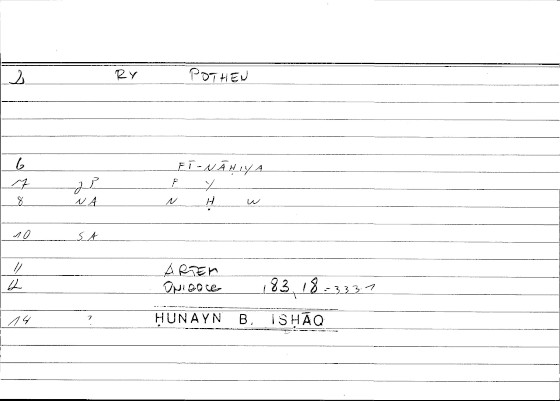 2 RY POTHEN
6 FĪ-NĀḤIYA
7 JP F Y
8 NA N Ḥ W
10 SA
11 ARTEM
12 183,18-3331
14 ? ḤUNAYN B. ISḤĀQ